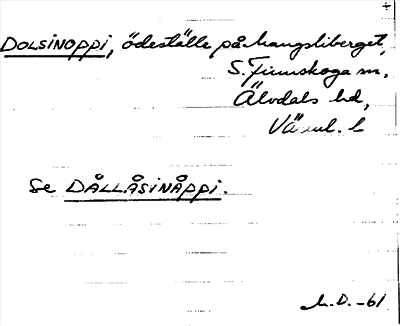 +
DOLSINOPPI, ödeställe på Mangsliberget,
S. Finnskoga sn,
Älvdals hd,
Värml. l
Se DÅLLÅSINÅPPI.
M.D. -61